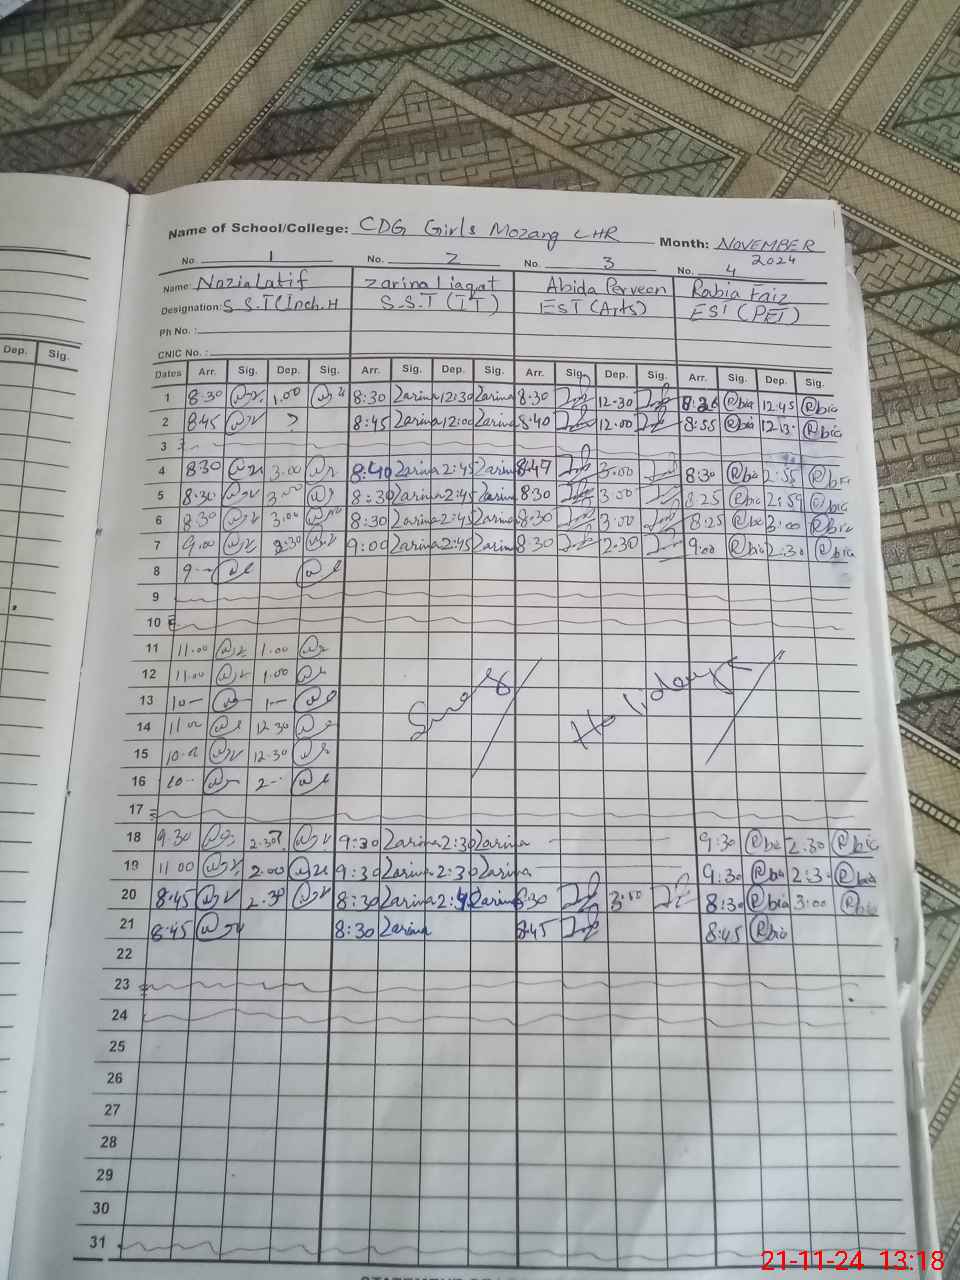 Name of School/College: CDG Girls Mozang LHR Month: NOVEMBER 2024
No. 1 No. 2 No. 3 No. 4
Name: Nazia Latif Zarina Liaqat Abida Perveen Rabia Faiz
Designation: S.S.T (Inch.H S.S.T (IT) EST (Arts) EST (PET)
Ph No. :
CNIC No. :
Dep. Sig.
Dates Arr. Sig. Dep. Sig. Arr. Sig. Dep. Sig. Arr. Sig. Dep. Sig. Arr. Sig. Dep. Sig.
1 8:30 1.00 8:30 Zarina 12:30 Zarina 8:30 12-30 @bia 12:45 @bia
2 8:45 8:45 Zarina 12:00 Zarina 8:40 12.00 8:55 @bia @bia
3
4 8:30 3.00 8:40 Zarina 2:45 Zarina 8:47 3.00 8:30 @bia 2:55 @bia
5 8:30 3.00 8:30 Zarina 2:45 Zarina 8:30 3.00 8:25 @bia 2:59 @bia
6 8:30 3.00 8:30 Zarina 2:45 Zarina 8:30 3.00 8:25 @bia 3:00 @bia
7 9.00 2:30 9:00 Zarina 2:45 Zarina 8:30 2.30 9:00 @bia 2:30 @bia
8 9-
9
10
11 11.00 1.00
12 11.00 1.00
13 10- 1-
Smog Holidays
14 11.00 12.30
15 10.00 12.30
16 10- 2-
17
18 9.30 2.30 9:30 Zarina 2:30 Zarina 9:30 @bia 2:30 @bia
19 11.00 2.00 9:30 Zarina 2:30 Zarina 9:30 @bia 2:30 @bia
20 8:45 2.30 8:30 Zarina Zarina 8:30 3:00 8:30 @bia 3:00 @bia
21 8:45 8:30 Zarina 8:45 8:45 @bia
22
23
24
25
26
27
28
29
30
31
21-11-24 13:18